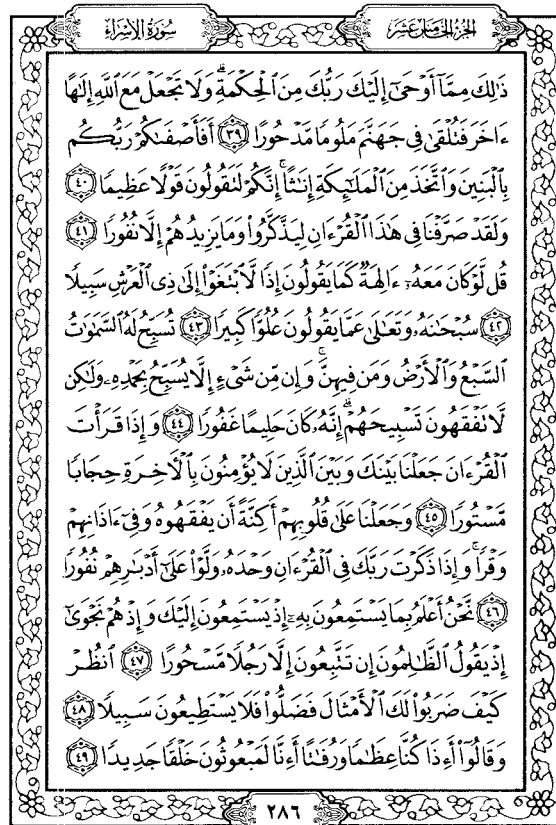 سُورَةُ الإِسْرَاءِ
الجُزْءُ الخَامِسُ عَشَرَ
ذَٰلِكَ مِمَّآ أَوْحَىٰٓ إِلَيْكَ رَبُّكَ مِنَ ٱلْحِكْمَةِۗ وَلَا تَجْعَلْ مَعَ ٱللَّهِ إِلَٰهًا
ءَاخَرَ فَتُلْقَىٰ فِى جَهَنَّمَ مَلُومًا مَّدْحُورًا ٣٩ أَفَأَصْفَىٰكُمْ رَبُّكُم
بِٱلْبَنِينَ وَٱتَّخَذَ مِنَ ٱلْمَلَٰٓئِكَةِ إِنَٰثًاۚ إِنَّكُمْ لَتَقُولُونَ قَوْلًا عَظِيمًا ٤٠
وَلَقَدْ صَرَّفْنَا فِى هَٰذَا ٱلْقُرْءَانِ لِيَذَّكَّرُوا۟ وَمَا يَزِيدُهُمْ إِلَّا نُفُورًا ٤١
قُل لَّوْ كَانَ مَعَهُۥٓ ءَالِهَةٌ كَمَا يَقُولُونَ إِذًا لَّٱبْتَغَوْا۟ إِلَىٰ ذِى ٱلْعَرْشِ سَبِيلًا
٤٢ سُبْحَٰنَهُۥ وَتَعَٰلَىٰ عَمَّا يَقُولُونَ عُلُوًّا كَبِيرًا ٤٣ تُسَبِّحُ لَهُ ٱلسَّمَٰوَٰتُ
ٱلسَّبْعُ وَٱلْأَرْضُ وَمَن فِيهِنَّۚ وَإِن مِّن شَىْءٍ إِلَّا يُسَبِّحُ بِحَمْدِهِۦ وَلَٰكِن
لَّا تَفْقَهُونَ تَسْبِيحَهُمْۗ إِنَّهُۥ كَانَ حَلِيمًا غَفُورًا ٤٤ وَإِذَا قَرَأْتَ
ٱلْقُرْءَانَ جَعَلْنَا بَيْنَكَ وَبَيْنَ ٱلَّذِينَ لَا يُؤْمِنُونَ بِٱلْءَاخِرَةِ حِجَابًا
مَّسْتُورًا ٤٥ وَجَعَلْنَا عَلَىٰ قُلُوبِهِمْ أَكِنَّةً أَن يَفْقَهُوهُ وَفِىٓ ءَاذَانِهِمْ
وَقْرًاۚ وَإِذَا ذَكَرْتَ رَبَّكَ فِى ٱلْقُرْءَانِ وَحْدَهُۥ وَلَّوْا۟ عَلَىٰٓ أَدْبَٰرِهِمْ نُفُورًا
٤٦ نَّحْنُ أَعْلَمُ بِمَا يَسْتَمِعُونَ بِهِۦٓ إِذْ يَسْتَمِعُونَ إِلَيْكَ وَإِذْ هُمْ نَجْوَىٰٓ
إِذْ يَقُولُ ٱلظَّٰلِمُونَ إِن تَتَّبِعُونَ إِلَّا رَجُلًا مَّسْحُورًا ٤٧ ٱنظُرْ
كَيْفَ ضَرَبُوا۟ لَكَ ٱلْأَمْثَالَ فَضَلُّوا۟ فَلَا يَسْتَطِيعُونَ سَبِيلًا ٤٨
وَقَالُوٓا۟ أَءِذَا كُنَّا عِظَٰمًا وَرُفَٰتًا أَءِنَّا لَمَبْعُوثُونَ خَلْقًا جَدِيدًا ٤٩
٢٨٦